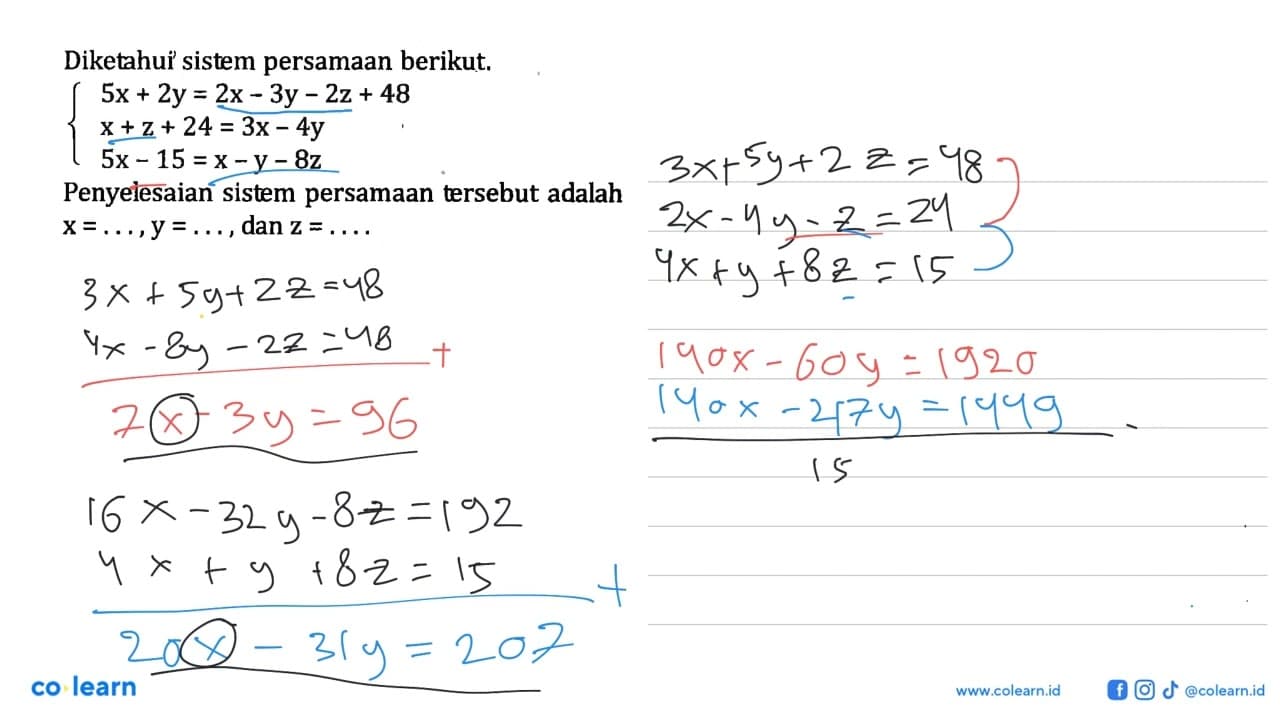 Diketahui sistem persamaan berikut.
5x + 2y = 2x – 3y – 2z + 48
x + z + 24 = 3x – 4y
5x – 15 = x – y – 8z
Penyelesaian sistem persamaan tersebut adalah
x = . . . , y = . . . , dan z = . . . .
3x + 5y + 2z = 48
4x - 8y - 2z = 48
+
7x - 3y = 96
16x - 32y - 8z = 192
4x + y + 8z = 15
+
20x - 31y = 207
3x + 5y + 2z = 48
2x - 4y - z = 24
4x + y + 8z = 15
140x - 60y = 1920
140x - 217y = 1449
-
15
co learn
www.colearn.id
@colearn.id